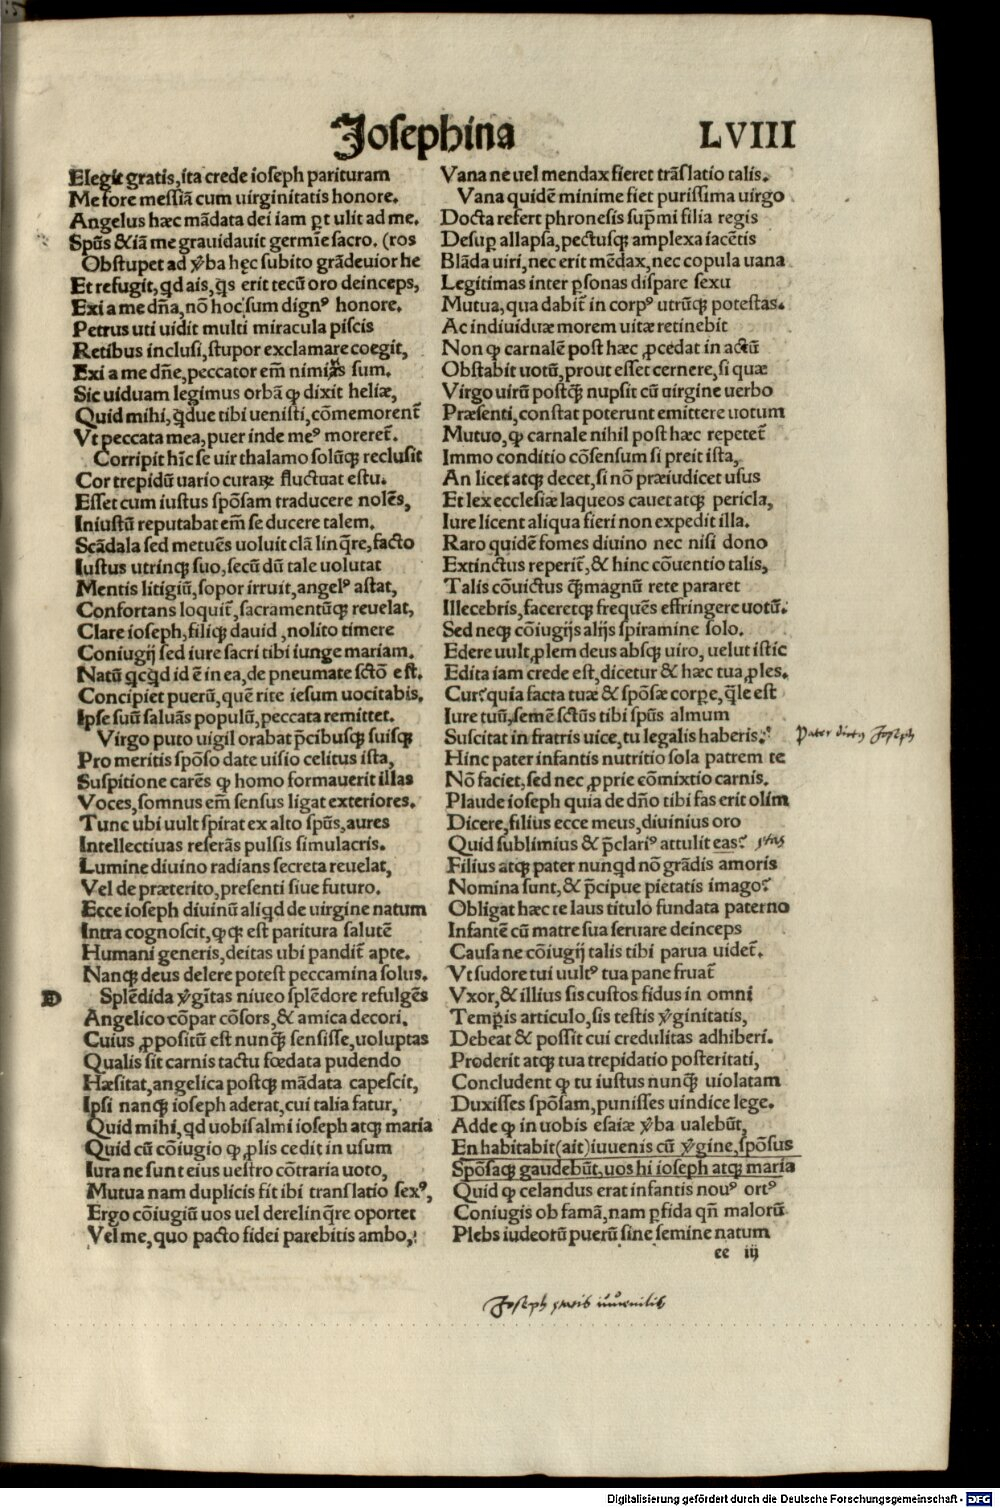 Josephina
LVIII
Elegit gratis, ita crede ioseph parituram
Me fore messiā cum uirginitatis honore.
Angelus hæc mādata dei iam ꝑtulit ad me.
Spūs &iā me grauidauit germīe sacro. (ros
Obstupet ad ꝟba hęc subito grādeuior he
Et refugit, qd ais, q̄s erit tecū oro deinceps,
Exi a me dn̄a, nō hoc sum dignꝰ honore.
Petrus uti uidit multi miracula piscis
Retibus inclusi, stupor exclamare coegit,
Exi a me dn̄e, peccator em̄ nimis sum.
Sic uiduam legimus orbā ꝙ dixit heliæ,
Quid mihi, q̄due tibi uenisti, cōmemorent̄
Vt peccata mea, puer inde meꝰ moreret̄.
Corripit hīc se uir thalamo solūqꝫ reclusit
Cor trepidū uario curaꝝ fluctuat estu.
Esset cum iustus spōsam traducere nolēs,
Iniustū reputabat em̄ se ducere talem.
Scādala sed metuēs uoluit clā linq̄re, facto
Iustus utrinqꝫ suo, secū dū tale uolutat
Mentis litigiū, sopor irruit, angelꝰ astat,
Confortans loquit̄, sacramentūqꝫ reuelat,
Clare ioseph, filiqꝫ dauid, nolito timere
Coniugij sed iure sacri tibi iunge mariam.
Natū qcqd id ē in ea, de pneumate sctō est.
Concipiet puerū, quē rite iesum uocitabis,
Ipse suū saluās populū, peccata remittet.
Virgo puto uigil orabat p̄cibusqꝫ suisqꝫ
Pro meritis spōso date uisio celitus ista,
Suspitione carēs ꝙ homo formauerit illas
Voces, somnus em̄ sensus ligat exteriores.
Tunc ubi uult spirat ex alto spūs, aures
Intellectiuas reserās pulsis simulacris.
Lumine diuino radians secreta reuelat,
Vel de præterito, presenti siue futuro.
Ecce ioseph diuinū aliqd de uirgine natum
Intra cognoscit, ꝙqꝫ est paritura salutē
Humani generis, deitas ubi pandit̄ apte.
Nanqꝫ deus delere potest peccamina solus.
D
Splēdida ꝟgītas niueo splēdore refulgēs
Angelico cōpar cōsors, & amica decori.
Cuius ꝓpositū est nunq̄ sensisse, uoluptas
Qualis sit carnis tactu fœdata pudendo
Hæsitat, angelica postqꝫ mādata capescit,
Ipsi nanqꝫ ioseph aderat, cui talia fatur,
Quid mihi, qd uobis almi ioseph atqꝫ maria
Quid cū cōiugio ꝙ ꝓlis cedit in usum
Iura ne sunt eius uestro cōtraria uoto,
Mutua nam duplicis fit ibi translatio sexꝰ,
Ergo cōiugiū uos uel derelinq̄re oportet
Vel me, quo pacto fidei parebitis ambo,
Vana ne uel mendax fieret trāslatio talis.
Vana quidē minime fiet purissima uirgo
Docta refert phronesis sup̄mi filia regis
Desuꝑ allapsa, pectusqꝫ amplexa iacētis
Blāda uiri, nec erit mēdax, nec copula uana
Legitimas inter ꝑsonas dispare sexu
Mutua, qua dabit̄ in corpꝰ utrūqꝫ potestas.
Ac indiuiduæ morem uitæ retinebit
Non ꝙ carnalē post hæc ꝓcedat in actū
Obstabit uotū, prout esset cernere, si quæ
Virgo uirū postq̄ nupsit cū uirgine uerbo
Præsenti, constat poterunt emittere uotum
Mutuo, ꝙ carnale nihil post hæc repetet̄
Immo conditio cōsensum si preit ista,
An licet atqꝫ decet, si nō præiudicet usus
Et lex ecclesiæ laqueos cauet atqꝫ pericla,
Iure licent aliqua fieri non expedit illa.
Raro quidē fomes diuino nec nisi dono
Extinctus reperit̄, & hinc cōuentio talis,
Talis cōuictus q̄magnū rete pararet
Illecebris, faceretqꝫ frequēs effringere uotū.
Sed neqꝫ cōiugijs alijs spiramine solo.
Edere uult ꝓlem deus absqꝫ uiro, uelut istic
Edita iam crede est, dicetur & hæc tua ꝓles.
Cur? quia facta tuæ & spōsæ corꝑe, q̄le est
Iure tuū, semē sctūs tibi spūs almum
Suscitat in fratris uice, tu legalis haberis.
Hinc pater infantis nutritio sola patrem te
Nō faciet, sed nec ꝓprie cōmixtio carnis.
Plaude ioseph quia de dn̄o tibi fas erit olim
Dicere, filius ecce meus, diuinius oro
Quid sublimius & p̄clariꝰ attulit eas?
Filius atqꝫ pater nunqd nō grādis amoris
Nomina sunt, & p̄cipue pietatis imago?
Obligat hæc te laus titulo fundata paterno
Infantē cū matre sua seruare deinceps
Causa ne cōiugij talis tibi parua uidet̄.
Vt sudore tui uultꝰ tua pane fruat̄
Vxor, & illius sis custos fidus in omni
Temꝑis articulo, sis testis ꝟginitatis,
Debeat & possit cui credulitas adhiberi.
Proderit atqꝫ tua trepidatio posteritati,
Concludent ꝙ tu iustus nunq̄ uiolatam
Duxisses spōsam, punisses uindice lege.
Adde ꝙ in uobis esaiæ ꝟba ualebūt,
En habitabit (ait) iuuenis cū ꝟgine, spōsus
Spōsaqꝫ gaudebūt, uos hi ioseph atqꝫ maria
Quid ꝙ celandus erat infantis nouꝰ ortꝰ
Coniugis ob famā, nam ꝑfida qn̄ malorū
Plebs iudeorū puerū sine semine natum
ee iij
Pater dictꝰ Joseph
ętas
Joseph ętatis iuuenilis
Digitalisierung gefördert durch die Deutsche Forschungsgemeinschaft - DFG